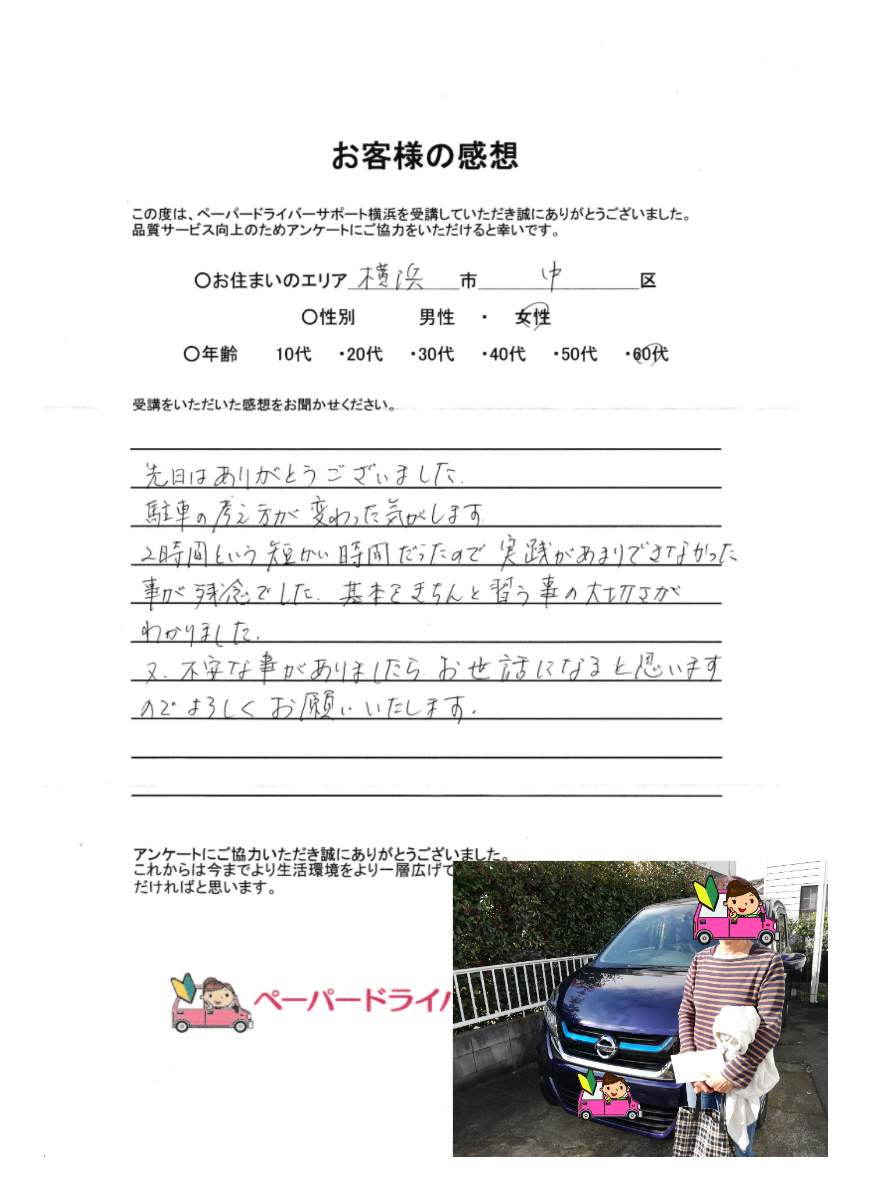 お客様の感想
この度は、ペーパードライバーサポート横浜を受講していただき誠にありがとうございました。
品質サービス向上のためアンケートにご協力をいただけると幸いです。
〇お住まいのエリア 横浜 市 中 区
〇性別 男性 ・ 女性
〇年齢 10代 ・20代 ・30代 ・40代 ・50代 ・60代
受講をいただいた感想をお聞かせください。
先日はありがとうございました.
駐車の考え方が変わった気がします
2時間という短かい時間だったので実践があまりできなかった
事が残念でした. 基本をきちんと習う事の大切さが
わかりました.
又、不安な事がありましたら、お世話になると思います
のでよろしくお願いいたします.
アンケートにご協力いただき誠にありがとうございました。
これからは今までより生活環境をより一層広げて
だければと思います。
ペーパードライバ